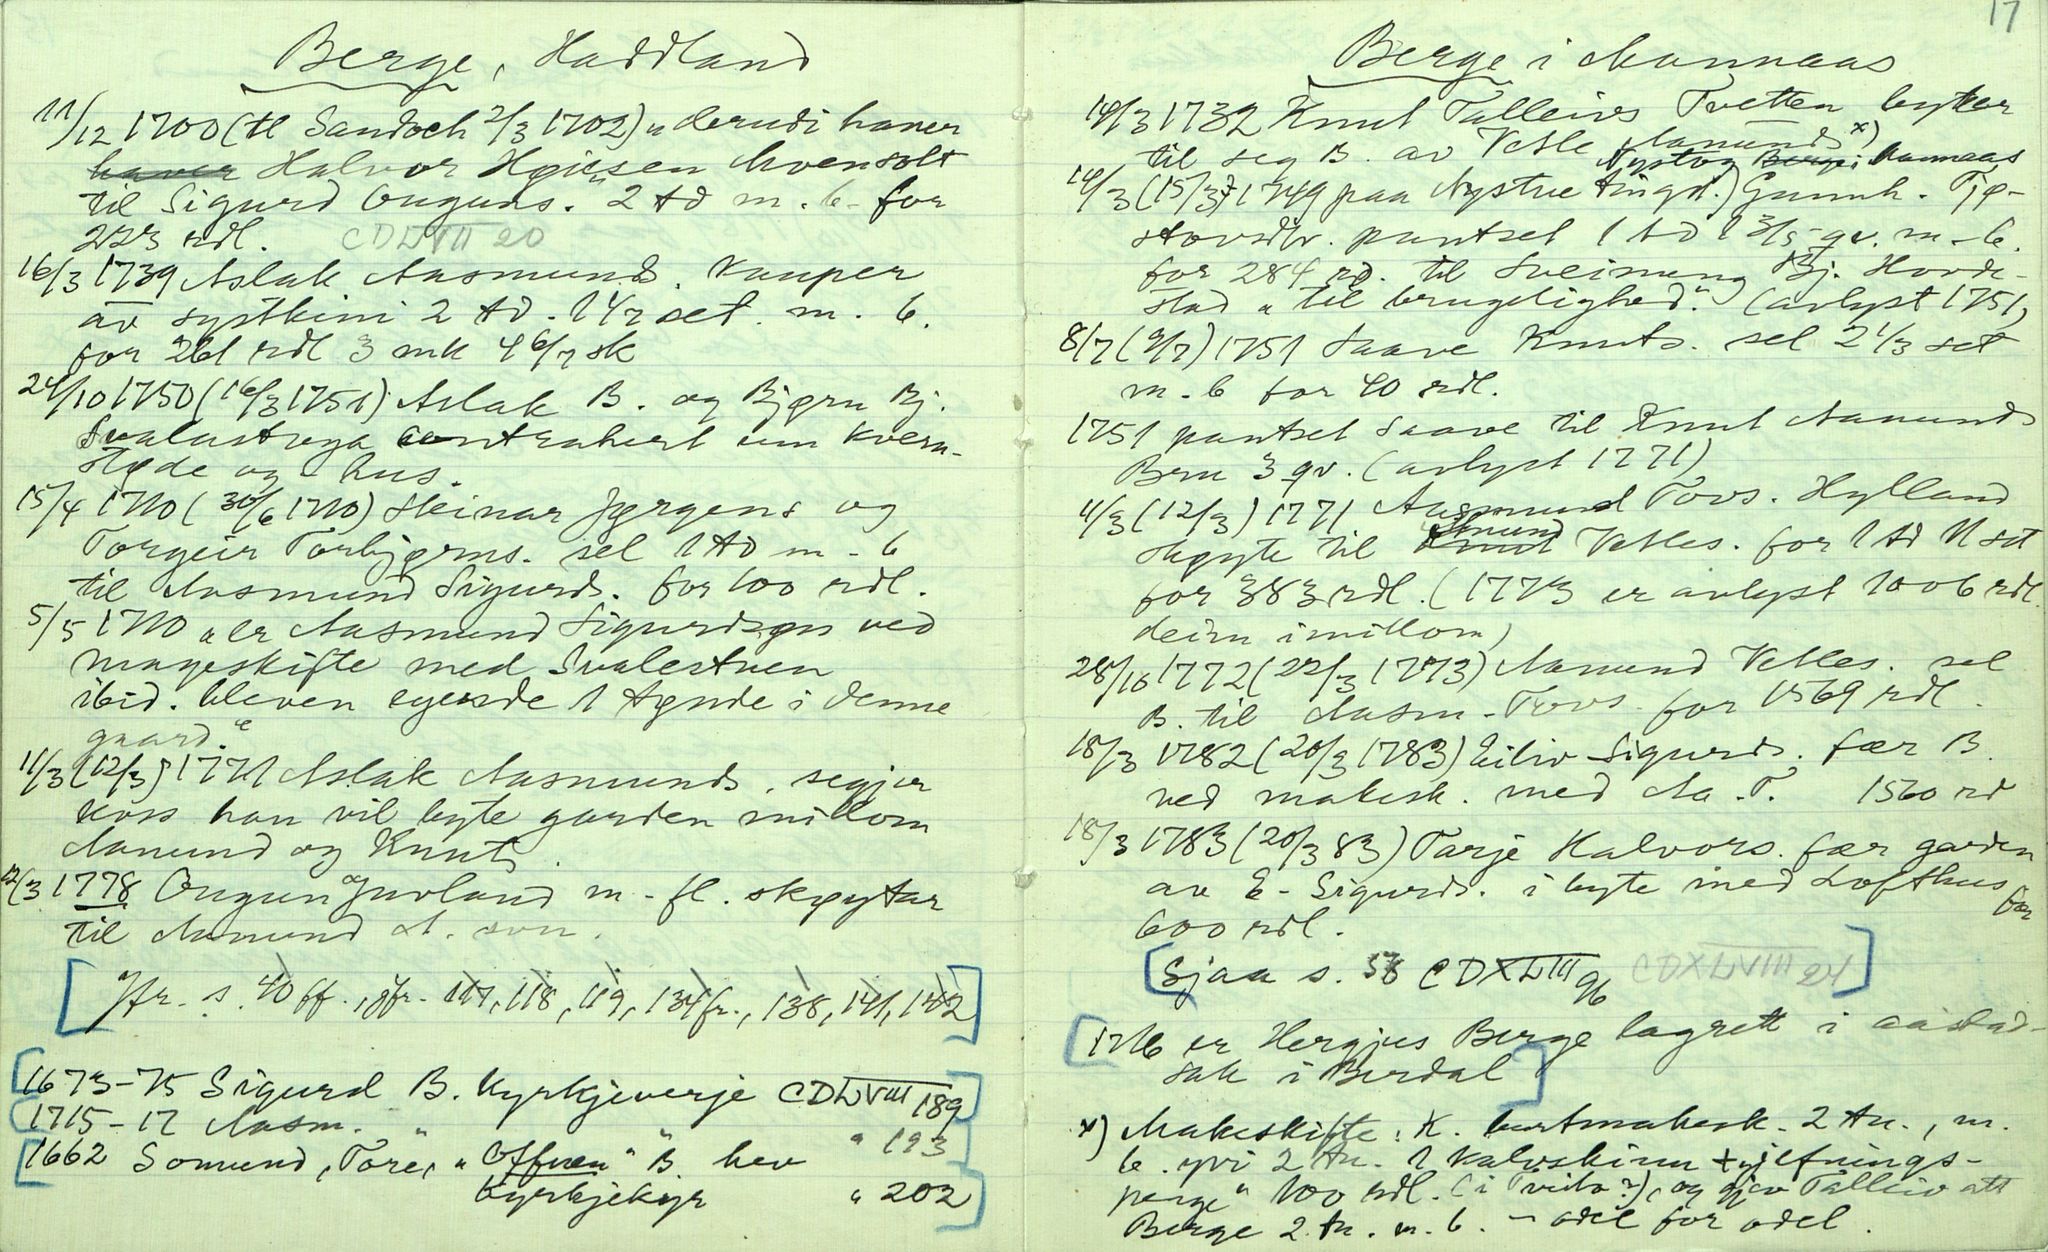 Berge, Haddland
11/12 1700 (tl Sandock 2/3 1702) „derudi haver
haver Halvor Høiesen Moen solt
til Sigurd Ouguns. 2 td m. b. for
223 rdl. CDLVIII 20
16/3 1739 Aslak Aasmunds. kauper
av systkini 2 td. 1 4/7 set. m. b.
for 261 rdl 3 mk 4 6/7 sk
24/10 1750 (16/3 1751) Aslak B. og Bjørn Bj.
Svalastoga contrahert um kvern-
støde og -hus.
15/4 1710 (30/6 1710) Steinar Jørgens og
Torgeir Torbjørns. sel 1 td m. b
til Aasmund Sigurds. for 100 rdl.
5/5 1710 „er Aasmund Sigurdsøn ved
mageskifte med Svalestuen
ibid. bleven eyende 1 tønde i denne
gaard."
11/3 (12/3) 1771 Aslak Aasmunds. segjer
koss han vil byte garden millom
Aanund og Knut.
12/3 1778 Ougun Juvland m. fl. skøytar
til Aamund A. son.
Jfr. s. 40 ff., jfr. 117, 118, 119, 134 fr., 138, 141, 142
1673-75 Sigurd B. kyrkjeverje CDLVIII 189
1715-17 Aasm. " " " 193
1662 Somund, Tore, „Offuen" B. hev
kyrkjekyr " 202
17
Berge i Mannaas
14/3 1732 Knut Talleivs Tvetten byter
til seg B. av Vetle Aanunds x)
Nystog Berge i Mannaas
14/3 (15/3) 1749 paa Nystue tingst.) Gunnh. Tjø-
stovsdtr. pantset 1 td 1 3/5 qv. m. b.
for 284 rd. til Sveinung Bj. Hovde-
stad „til brugelighed". (avlyst 1751)
8/7 (9/7) 1751 Saave Knuts. sel 2 1/3 set
m. b for 40 rdl.
1751 pantset Saave til Knut Aanunds
Bru 3 qv. (avlyst 1771)
11/3 (12/3) 1771 Aasmund Tovs. Hylland
skøyte til Knut Aanund Vetles. for 1 td 11 set
for 383 rdl. (1773 er avlyst 1006 rdl.
deim imillom)
28/10 1772 (22/3 1773) Aanund Vetles. sel
B. til Aasm. Tovs. for 1569 rdl.
18/3 1782 (20/3 1783) Eiliv Sigurds. fær B.
ved makesk. med Aa. T. 1560 rd
18/3 1783 (20/3 83) Tarje Halvors. fær garden
av E. Sigurds. i byte med Lofthus for
600 rdl.
Sjaa s. 58 CDXLIII 96 CDXLVIII 24
1716 er Hergjus Berge lagrett i aastad-
sak i Berdal
x) Makeskifte: K. burtmakesk. 2 tn., m.
b. yvi 2 tn. 1 kalvskinn + „jefnings-
penge" 100 rdl. (i Tveito?), og gjev Talleiv att
Berge 2 tn. m. b. – odel for odel.